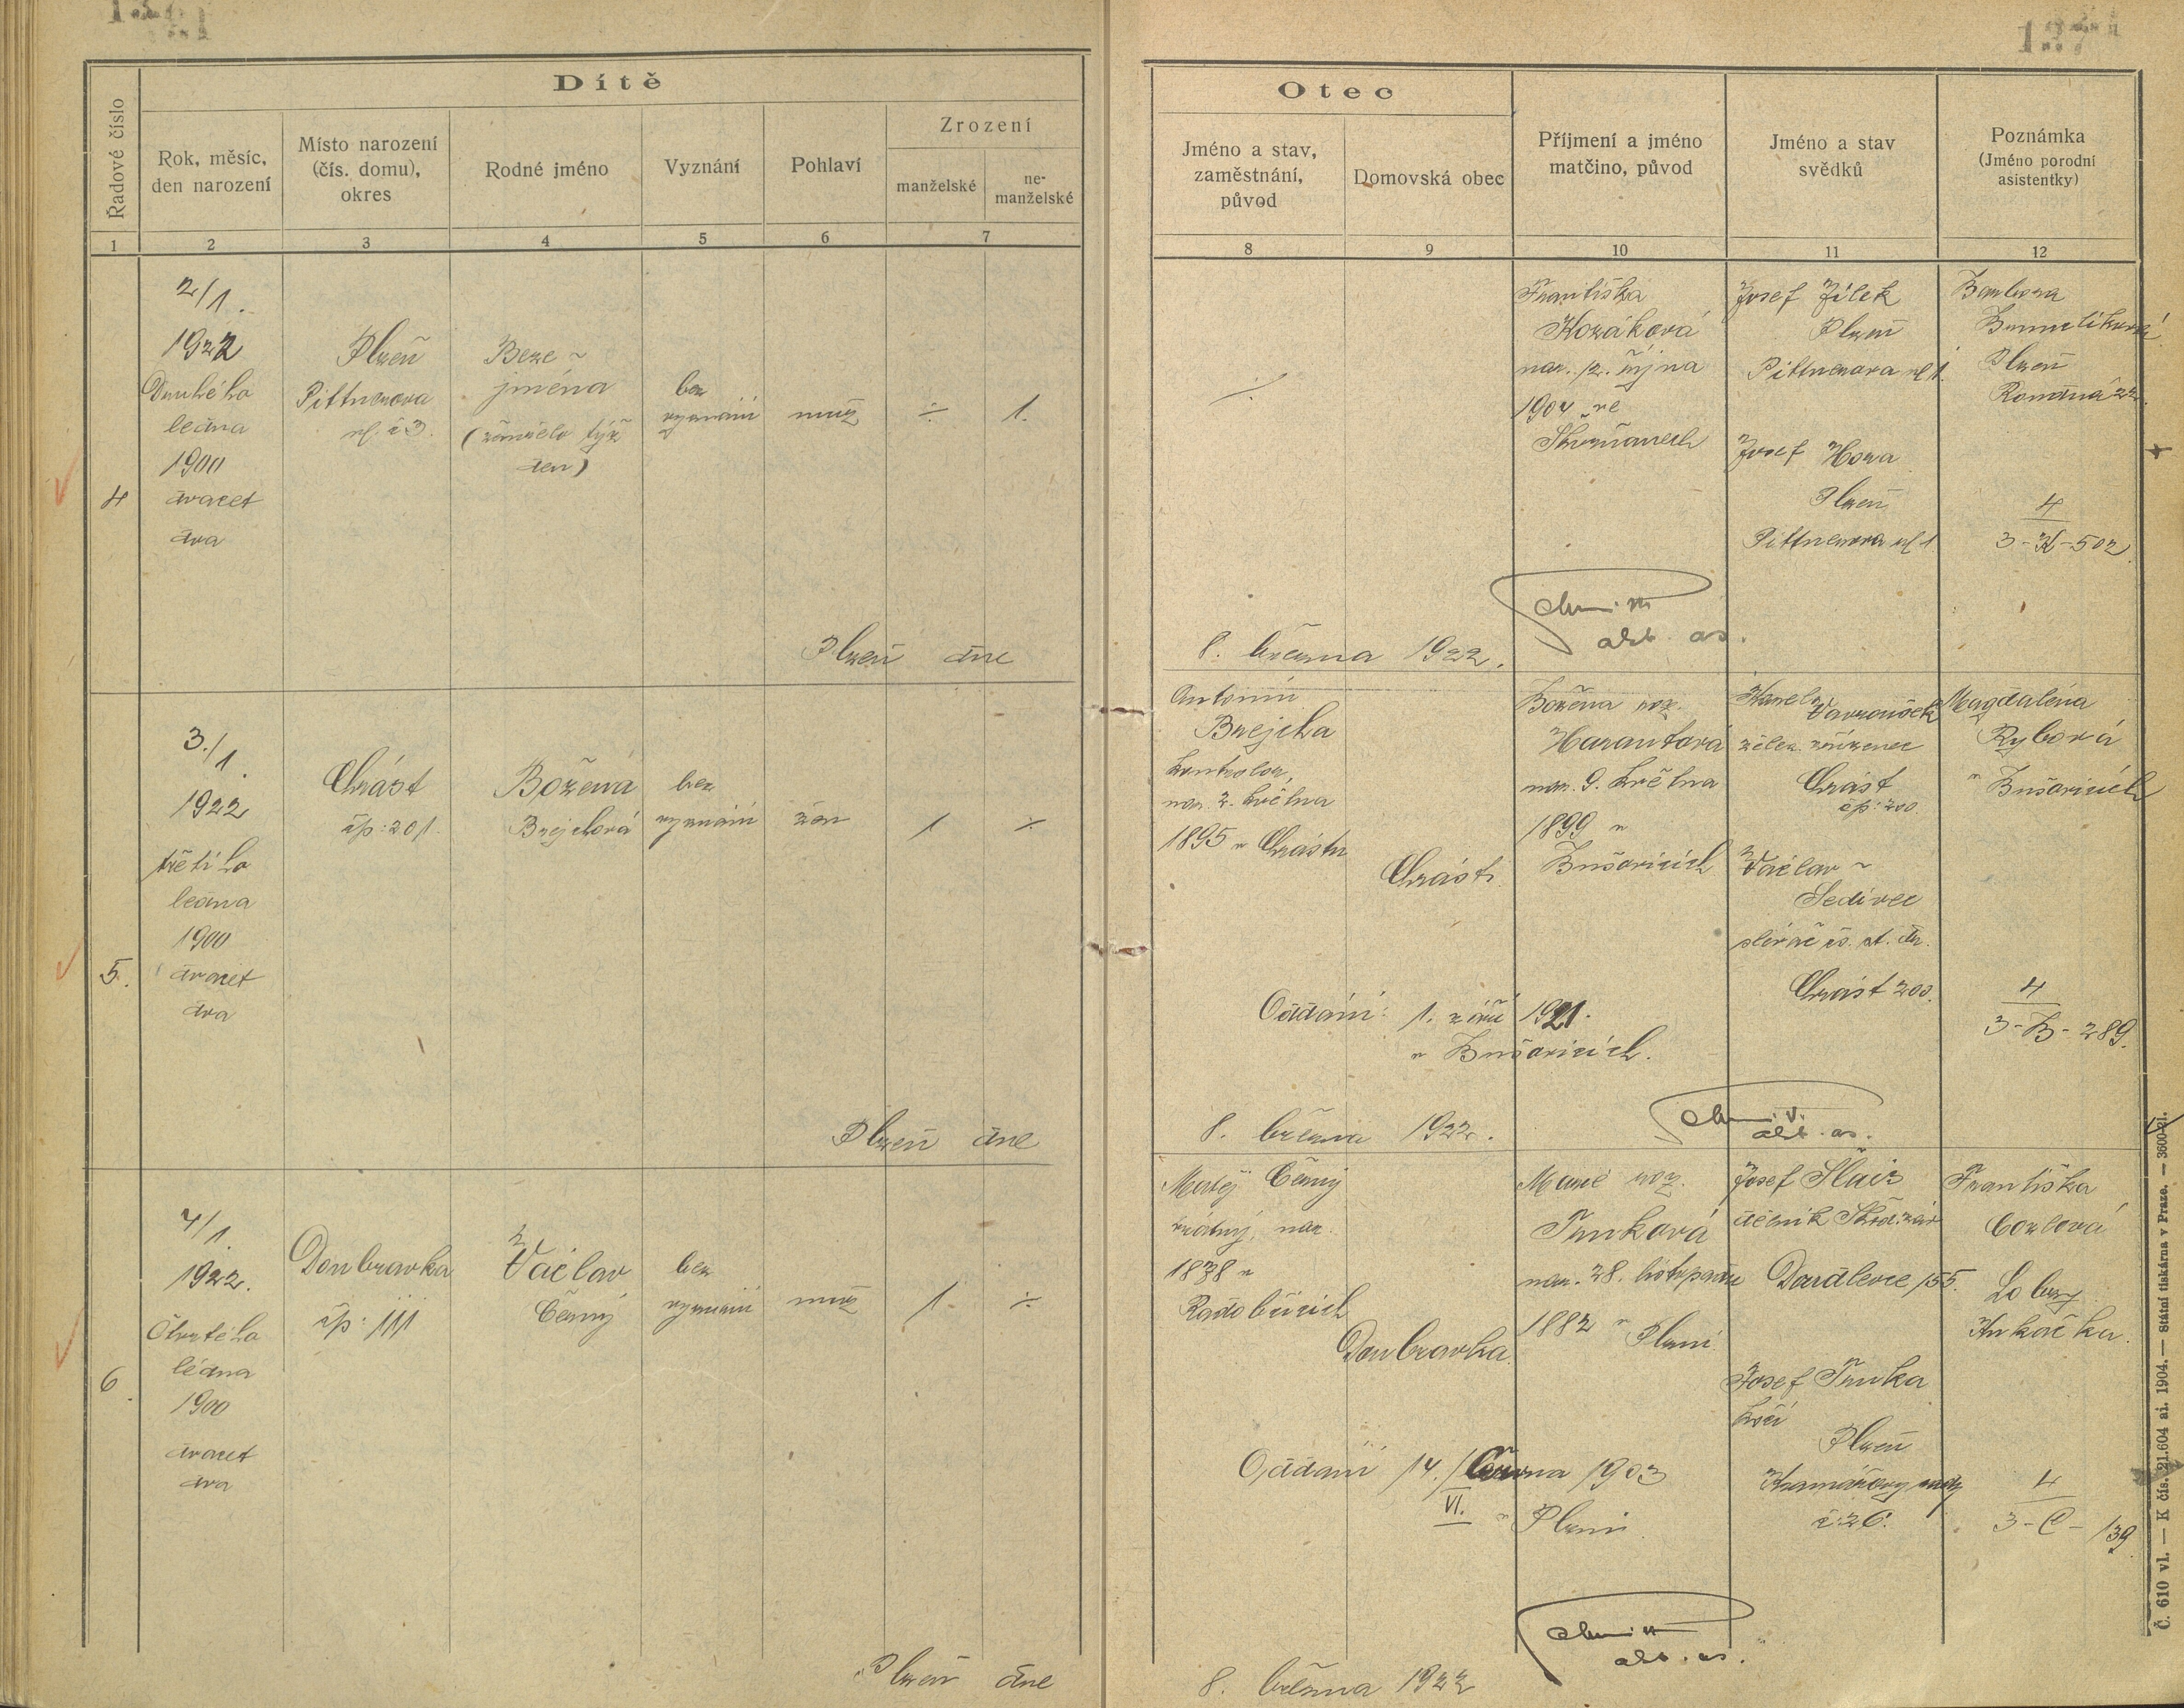 137
Dítě
Řadové číslo
Rok, měsíc,
den narození
Místo narození
(čís. domu),
okres
Rodné jméno
Vyznání
Pohlaví
Zrození
manželské
ne-
manželské
1
2
3
4
5
6
7
Otec
Jméno a stav,
zaměstnání,
původ
Domovská obec
Příjmení a jméno
matčino, původ
Jméno a stav
svědků
Poznámka
(Jméno porodní
asistentky)
8
9
10
11
12
4
2/1.
1922
Druhého
ledna
1900
dvacet
dva
Plzeň
Pittnerova
ul. č 3.
Beze ~
jména
(zemřelo týž
den)
bez
vyznání
muž
÷
1.
÷
Františka
Kozáková
nar. 12. října
1904 ve
Josef Jílek
Plzeň
Pittnerova ul 1.
Josef Hora
Plzeň
Pittnerova ul 1.
Barbora
Plzeň
Románá 22.
4
3-K-502
Plzeň dne
8. března 1922.
5.
3./1.
1922
třetího
ledna
1900
dvacet
dva
Chrást
čp: 201.
Božena
Brejchová
bez
vyznání
žen
1
÷
Antonín
Brejcha
kontrolor,
nar. 2. května
1895 v Chrástu
Chrást.
Božena roz.
Harantová
nar. 9. května
1899 v
Bušovicích
Karel Vavroušek
želez. zřízenec
Chrást
čp: 200.
Václav ~
Šedivec
slévač čs. st. dr.
Chrást 200.
Magdalena
Rybová
v Bušovicích
4
3-B-289.
Oddáni: 1. září 1921.
v Bušovicích.
Plzeň dne
8. března 1922.
6
4/1.
1922.
Čtvrtého
ledna
1900
dvacet
dva
Doubravka
čp: 111
Václav
Černý
bez
vyznání
muž
1.
÷
Matěj Černý
nar.
1878 v
Doubravka.
Marie roz.
Trnková
nar. 28. listopadu
1882 v Plzni
Josef
dělník Škod. záv
Doudlevce 155.
Josef Trnka
krčí
Plzeň
Kramářovy sady
č: 26.
Františka
Lobzy
4
3-C-139
Oddáni 14./června 1903
VI. v Plzni.
Plzeň dne
8. března 1922
Č. 610 vl. — K čís. 21.604 ai. 1904. — Státní tiskárna v Praze. — 3600-21.